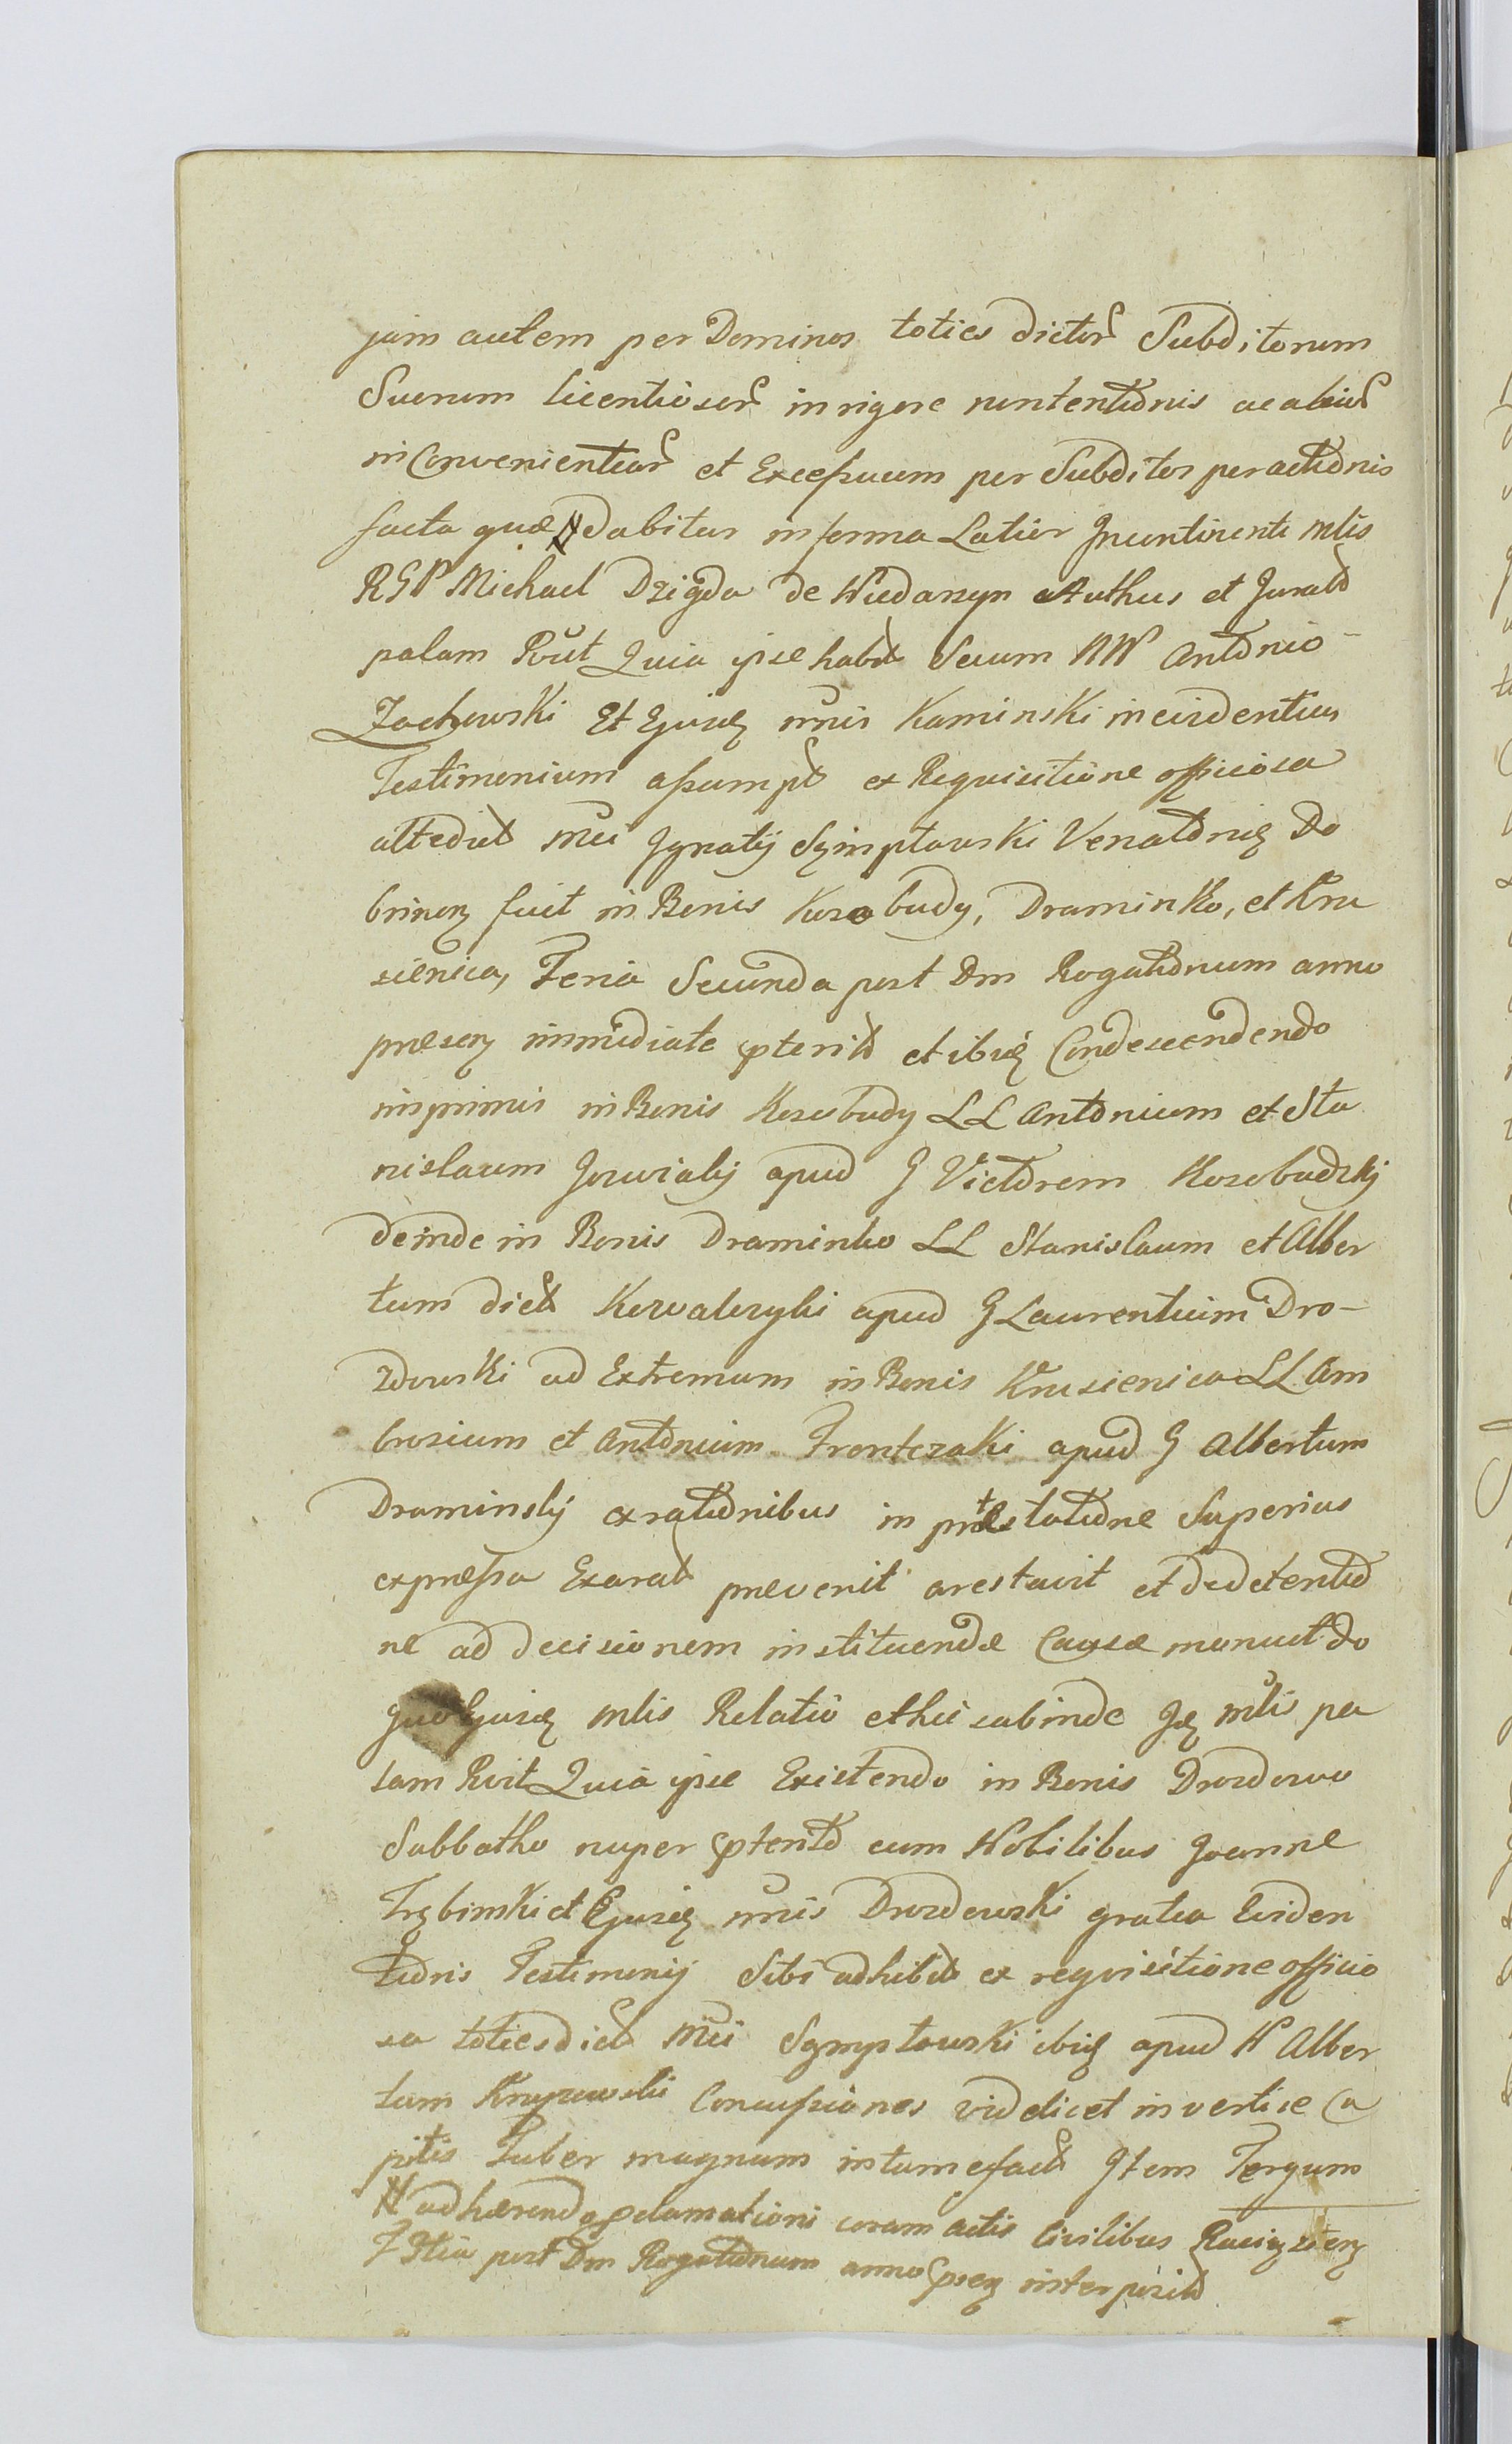 jam autem per Dominos toties dictor Subditorum
Suorum licentiosor in rigore nontentionis ac alior
in Convenientiar et Excessuum per Subditos peractionis
facta quæ dabitur in forma Latior Incontinenti mlis
RGP Michael Dzigda de Niedarzyn Authus et Jurato
palam Rvit Quia ipse habit Secum NN Antonio
Zochowski Et Ejusq mnis Kaminski in evidentius
Testimonium assumpt ex Requisitione officiosa
altedict Mci Ignatij Symptowski Venatoris Do
brinen fuit in Bonis Kosobudy, Draminko, et Kru
sienica, Feria Secunda post Dm Rogationum anno
præsen immediate pterito et ibiq Condescendendo
inprimis in Bonis Kosobudy LL Antonium et Sta
nislaum Jowialij apud G Victorem Kosobudzkj
deinde in Bonis Draminko LL Stanislaum et Alber
tum dict Kowalczyki apud G Laurentium Dro-
zdowski ad Extremum in Bonis Krusienica LL Am
brosium et Antonium Frontczaki apud G Albertum
Draminskj ex rationibus in protestatione Superius
expressa Exarat prævenit arestavit et de detentio
ne ad decisionem instituendæ Causæ monuit do
quo Ejusq mlis Relatio et hic subinde Iq mlis pa
lam Rvit Quia ipse Existendo in Bonis Drozdowo
Sabbatho nuper pterito cum Nobilibus Joanne
Trębinski et Ejusq mnis Drozdowski gratia Eviden
tioris Testimonij Sibi adhibit ex requisitione officio
sa toties dict Mci Symptowski ibiq apud N Alber
tum Kryzewski Concussiones videlicet in vertice Ca
pitis Tuber magnum intumefact Item Tergum
N adhærendo pclamationi coram actis Civilibus Raciązien
F 3tia post Dm Rogationum anno psen interposito